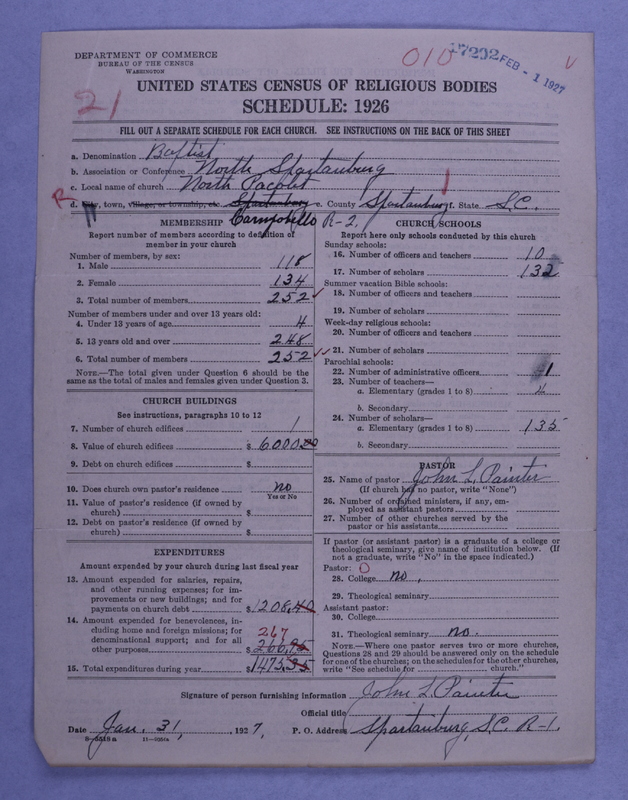 DEPARTMENT OF COMMERCE
BUREAU OF THE CENSUS
WASHINGTON
010
17292 FEB - 1 1927
V
21
UNITED STATES CENSUS OF RELIGIOUS BODIES
SCHEDULE: 1926
FILL OUT A SEPARATE SCHEDULE FOR EACH CHURCH. SEE INSTRUCTIONS ON THE BACK OF THIS SHEET
a. Denomination Baptist
b. Association or Conference North Spartanburg
c. Local name of church North Pacolet
R d. City, town, village, or township, etc. Spartanburg e. County Spartanburg f. State S.C.
Campobello R-2.
MEMBERSHIP
Report number of members according to definition of member in your church
Number of members, by sex:
1. Male 118
2. Female 134
3. Total number of members 252
Number of members under and over 13 years old:
4. Under 13 years of age 4
5. 13 years old and over 248
6. Total number of members 252
NOTE.—The total given under Question 6 should be the same as the total of males and females given under Question 3.
CHURCH BUILDINGS
See instructions, paragraphs 10 to 12
7. Number of church edifices 1
8. Value of church edifices $ 6000.00
9. Debt on church edifices $
10. Does church own pastor's residence no
Yes or No
11. Value of pastor's residence (if owned by church) $
12. Debt on pastor's residence (if owned by church) $
EXPENDITURES
Amount expended by your church during last fiscal year
13. Amount expended for salaries, repairs, and other running expenses; for improvements or new buildings; and for payments on church debt $ 1208.40
14. Amount expended for benevolences, including home and foreign missions; for denominational support; and for all other purposes $ 266.95
267
15. Total expenditures during year $ 1475.35
CHURCH SCHOOLS
Report here only schools conducted by this church
Sunday schools:
16. Number of officers and teachers 10
17. Number of scholars 132
Summer vacation Bible schools:
18. Number of officers and teachers
19. Number of scholars
Week-day religious schools:
20. Number of officers and teachers
21. Number of scholars
Parochial schools:
22. Number of administrative officers 1
23. Number of teachers—
a. Elementary (grades 1 to 8) 4
b. Secondary
24. Number of scholars—
a. Elementary (grades 1 to 8) 135
b. Secondary
PASTOR
25. Name of pastor John L. Painter
(If church has no pastor, write "None")
26. Number of ordained ministers, if any, employed as assistant pastors
27. Number of other churches served by the pastor or his assistants
If pastor (or assistant pastor) is a graduate of a college or theological seminary, give name of institution below. (If not a graduate, write "No" in the space indicated.)
Pastor: 0
28. College no,
29. Theological seminary
Assistant pastor:
30. College
31. Theological seminary no.
NOTE.—Where one pastor serves two or more churches, Questions 28 and 29 should be answered only on the schedule for one of the churches; on the schedules for the other churches, write "See schedule for church."
Signature of person furnishing information John L Painter
Official title
Date Jan. 31, , 1927, P. O. Address Spartanburg, S.C. R-1.